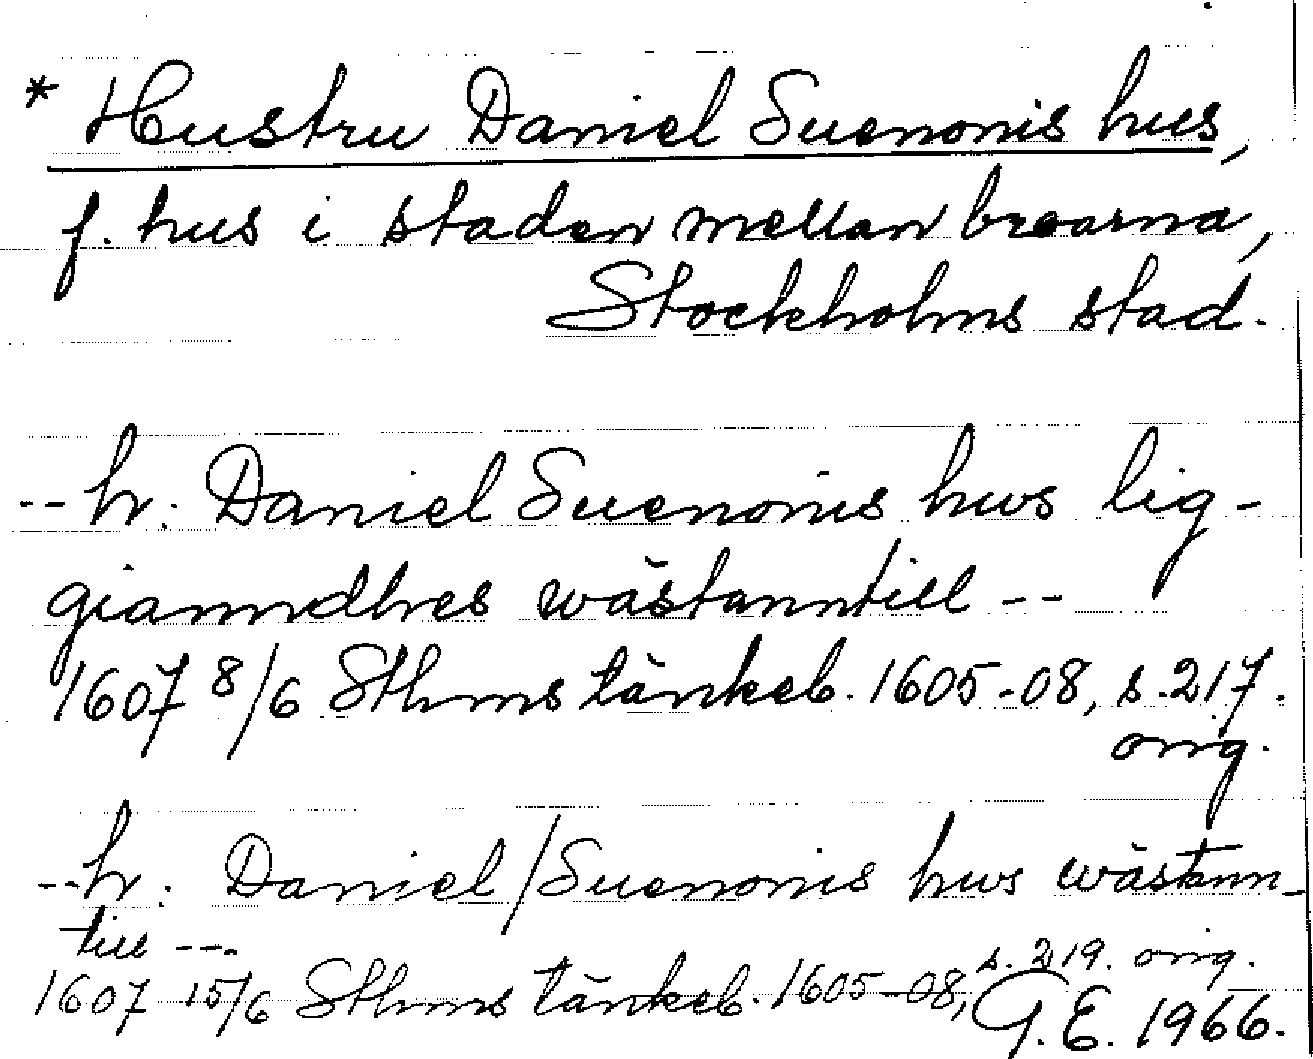 * Hustru Daniel Suenonis hus,
f. hus i staden mellan broarna,
Stockholms stad.
-- h. Daniel Suenonis hws lig-
gianndhes wästanntill --
1607 8/6 Sthms tänkeb. 1605-08, s. 217.
orig.
-- h. Daniel/Suenonis hws wästann-
till ---
s. 219. orig.
1607 15/6 Sthms tänkeb. 1605-08,
G.E. 1966.